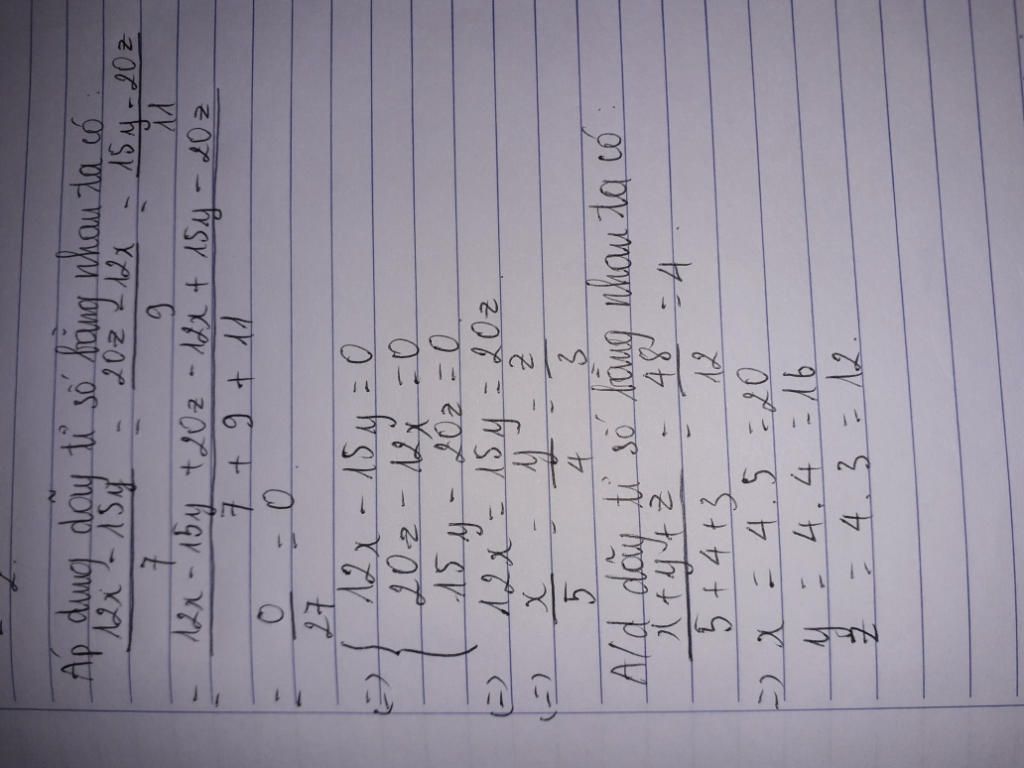 2.
Áp dụng dãy tỉ số bằng nhau ta có:
12x - 15y / 7 = 20z - 12x / 9 = 15y - 20z / 11
= 12x - 15y + 20z - 12x + 15y - 20z / 7 + 9 + 11
= 0 / 27 = 0
(=) { 12x - 15y = 0
20z - 12x = 0
15y - 20z = 0
(=) 12x = 15y = 20z
(=) x / 5 = y / 4 = z / 3
A/d dãy tỉ số bằng nhau ta có:
x + y + z / 5 + 4 + 3 = 48 / 12 = 4
=) x = 4.5 = 20
y = 4.4 = 16
z = 4.3 = 12.